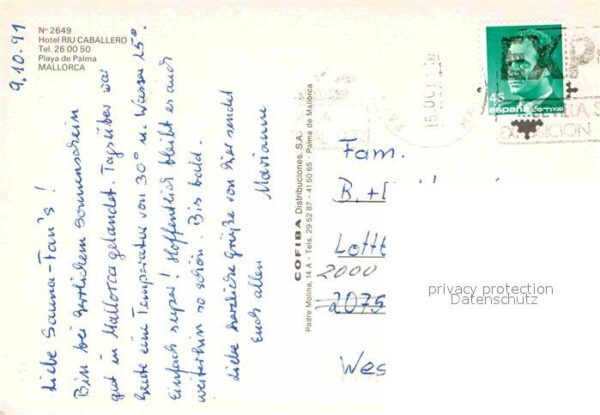 Nº 2649
Hotel RIU CABALLERO
Tel. 26 00 50
Playa de Palma
MALLORCA
9.10.91
Liebe Sauna-Fan's!
Bin bei herrlichem Sonnenschein
gut in Mallorca gelandet. Tagsüber war
heute eine Temperatur von 30° u. Wasser 25°.
Einfach super! Hoffentlich bleibt es auch
weiterhin so schön. Bis bald.
Liebe herzliche Grüße von hier sendet
Euch allen
Marianne
COFIBA Distribuciones, S.A.
Padre Molina, 14 A - Tels. 29 52 87 - 41 50 65 - Palma de Mallorca
45
españa Correos
15 OCT
EXP
SEVILLA
Fam.
B. +
Lott
2000
2075
Wes
privacy protection
Datenschutz